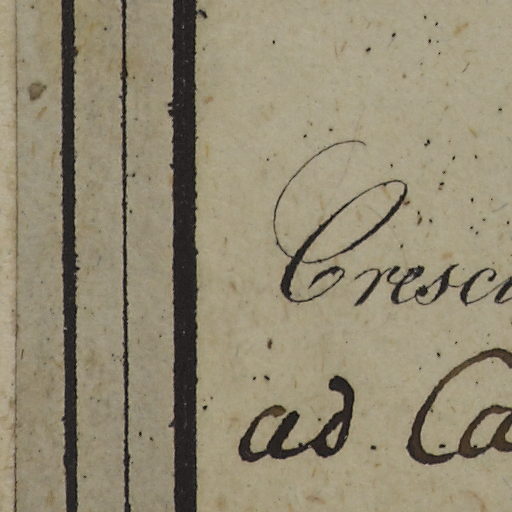 Cresc
ad. Ca